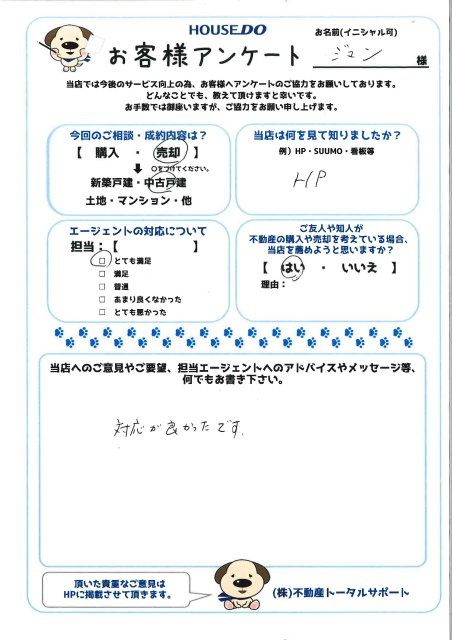 HOUSEDO
お客様アンケート
お名前(イニシャル可)
ジュン 様
当店では今後のサービス向上の為、お客様へアンケートのご協力をお願いしております。
どんなことでも、教えて頂けますと幸いです。
お手数では御座いますが、ご協力をお願い申し上げます。
今回のご相談・成約内容は?
【 購入 ・ 売却 】
○をつけてください。
新築戸建・中古戸建
土地・マンション・他
当店は何を見て知りましたか?
例)HP・SUUMO・看板等
HP
エージェントの対応について
担当:【 】
□ とても満足
□ 満足
□ 普通
□ あまり良くなかった
□ とても悪かった
ご友人や知人が
不動産の購入や売却を考えている場合、
当店を薦めようと思いますか?
【 はい ・ いいえ 】
理由:
当店へのご意見やご要望、担当エージェントへのアドバイスやメッセージ等、
何でもお書き下さい。
対応が良かったです.
頂いた貴重なご意見は
HPに掲載させて頂きます。
(株)不動産トータルサポート